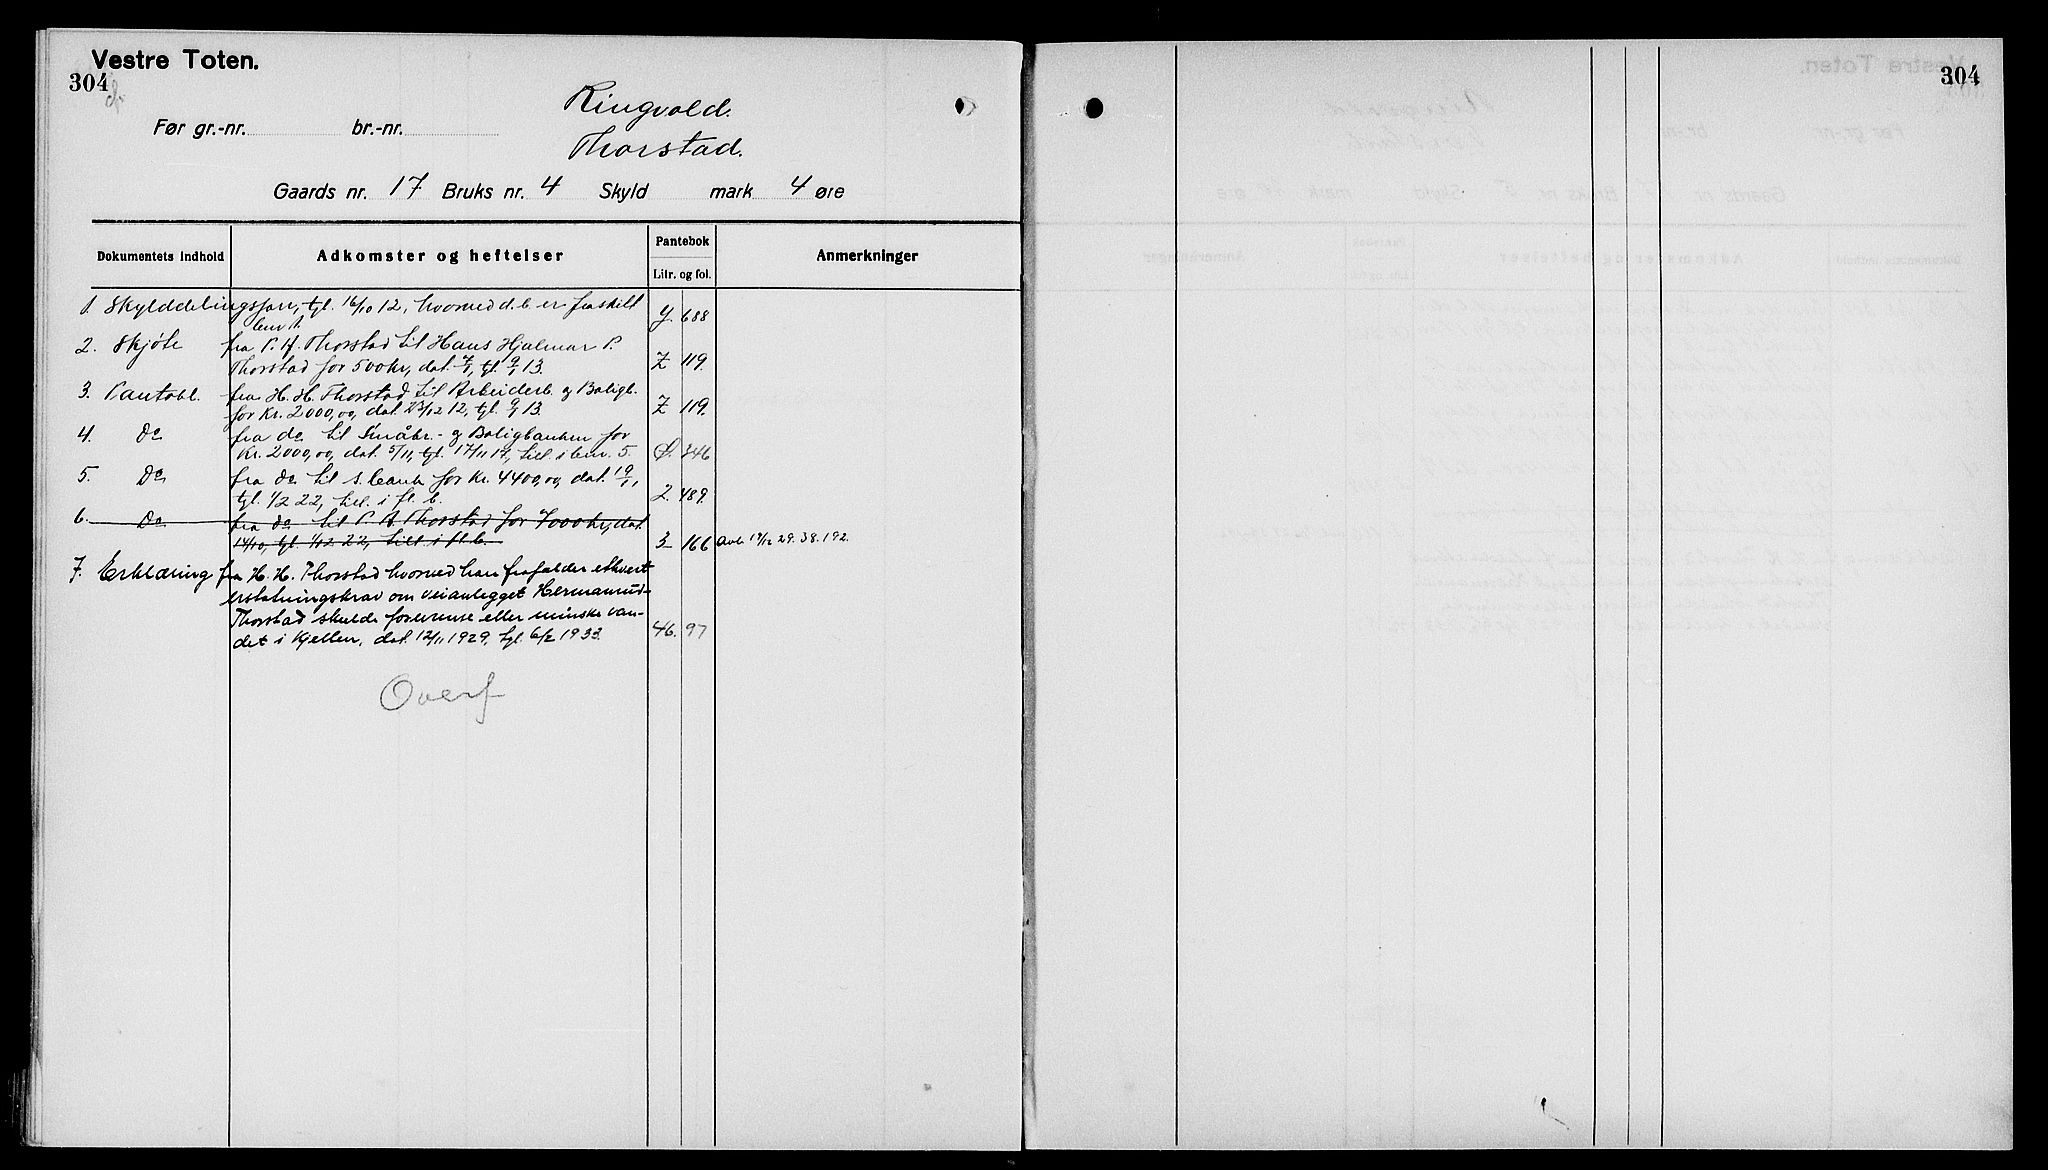 Vestre Toten.
304
Ringvold.
Før gr.-nr. br.-nr.
Thorstad.
Gaards nr. 17 Bruks nr. 4 Skyld mark 4 øre
Dokumentets indhold Adkomster og heftelser Pantebok Litr. og fol. Anmerkninger
1. Skylddelingsforr, tgl. 16/10 12, hvorved d.b. er fraskilt
bnr 1. Y. 688
2. Skjøte fra P. A. Thorstad til Hans Hjalmar P.
Thorstad for 500 kr, dat. 7/1, tgl. 9/1 13. Z 119.
3. Pantobl. fra H. H. Thorstad til Arbeiderb. og Boligb.
for Kr. 2000,00, dat. 23/12 12, tgl. 9/1 13. Z 119.
4. Do fra do til Småbr.- og Boligbanken for
Kr. 2000,00, dat. 5/11, tgl. 17/11 17, till. i bnr. 5. 346
5. Do fra do til s. bank for Kr. 4400,00, dat. 19/1,
tgl. 1/2 22, till. i fl. b. 2. 489.
6. Do fra do til P. A. Thorstad for 7000 kr, dat.
14/10, tgl. 1/12 22, till. i fl. b. 3 166 Avl. 19/12 29. 38. 192.
7. Erklæring fra H. H. Thorstad hvorved han frafalder ethvert
erstatningskrav om veianlegget Hermanrud-
Thorstad skulde forurense eller minske van-
det i kjellen, dat. 12/11 1929, tgl. 6/2 1933. 46. 97
Overf
304